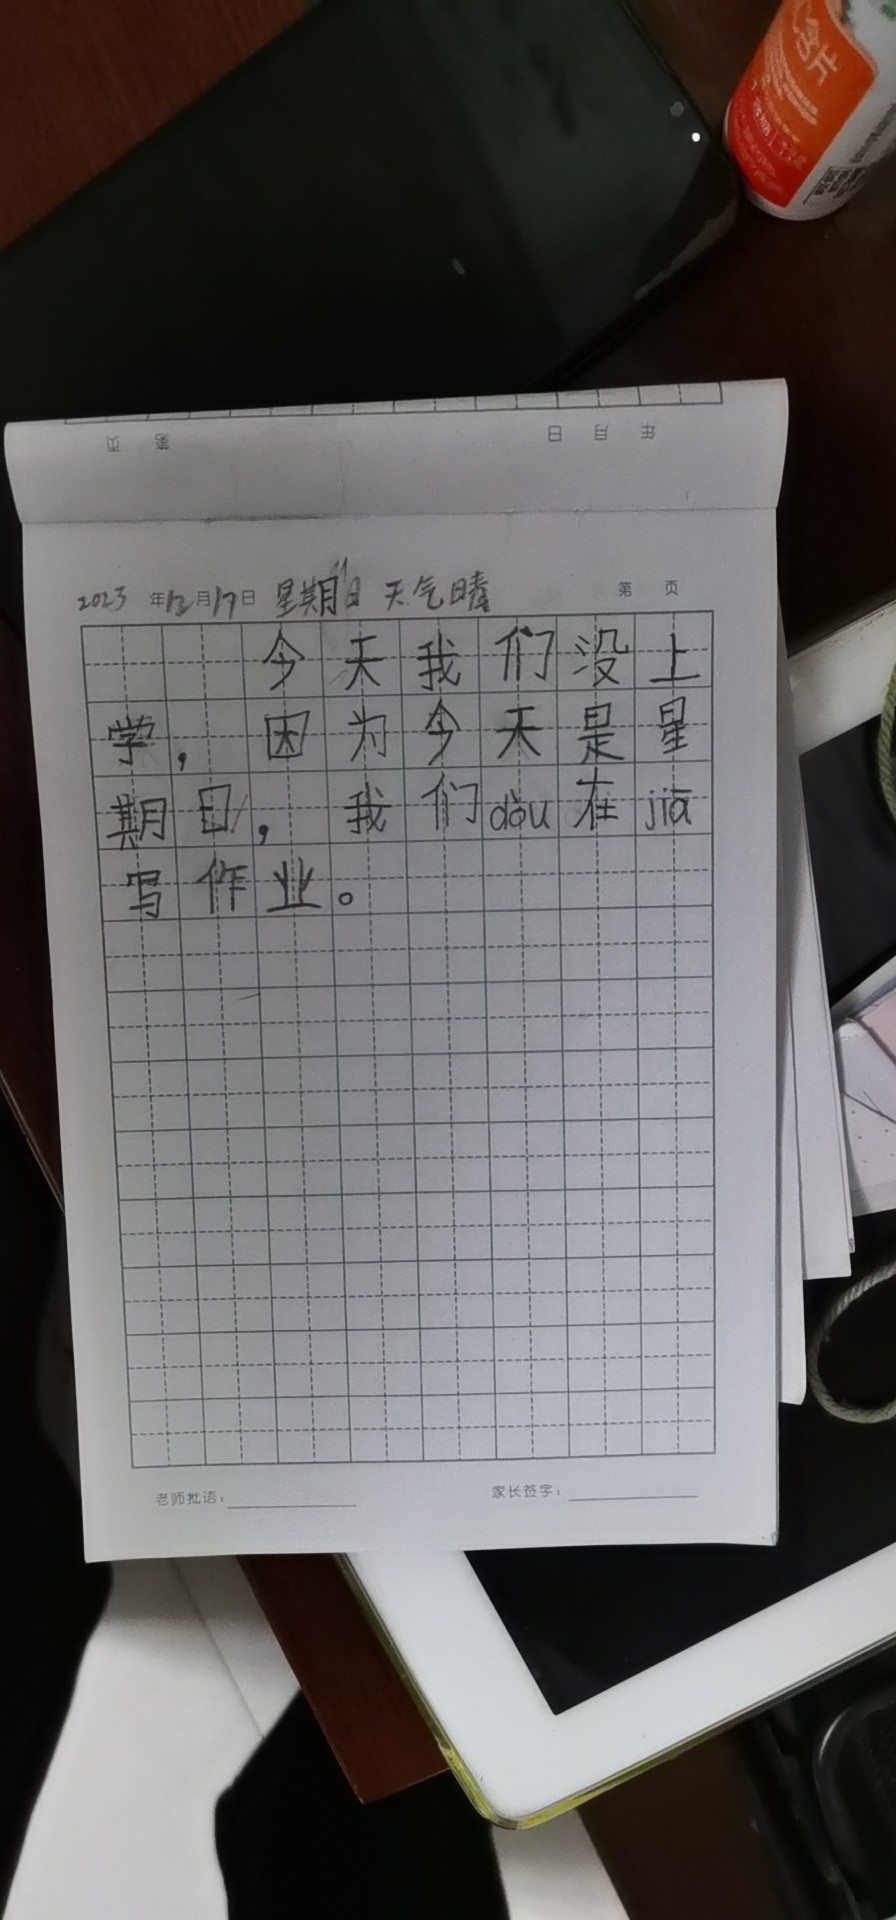 含片
年 月 日 第 页
2023 年 12 月 17 日 星期日 天气晴 第 页
今天我们没上
学，因为今天是星
期日，我们dōu在jiā
写作业。
老师批语：
家长签字：